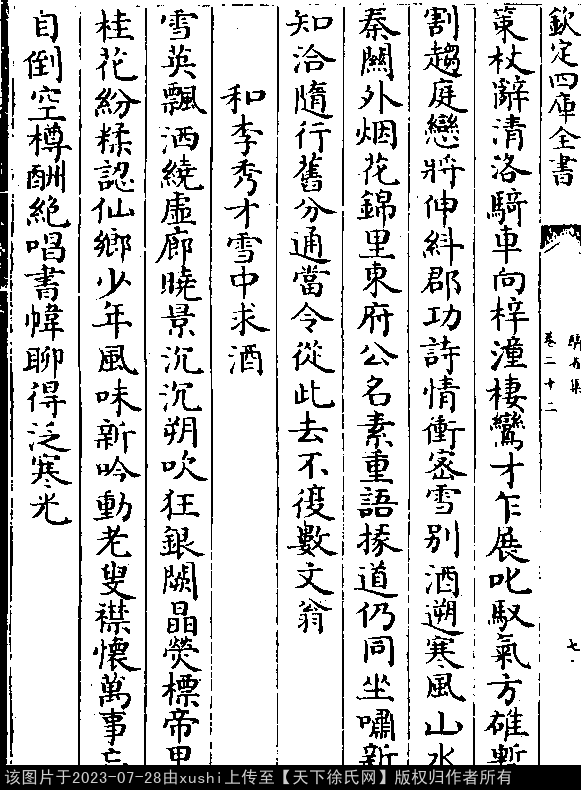 欽定四庫全書
卷二十二
七
策杖辭清洛騎車向梓潼棲鸞才乍展叱馭氣方雄暫
割趨庭戀將伸糾郡功詩情衝宻雪别酒遡寒風山水
秦闗外烟花錦里東府公名素重語掾道仍同坐嘯新
知洽隨行舊分通當令從此去不復數文翁
和李秀才雪中求酒
雪英飄洒繞虚廊曉景沉沉朔吹狂銀闕晶熒標帝里
桂花紛糅認仙鄉少年風味新吟動老叟襟懷萬事忘
自倒空樽酬絶唱書幃聊得泛寒光
该图片于2023-07-28由xushi上传至【天下徐氏网】版权归作者所有